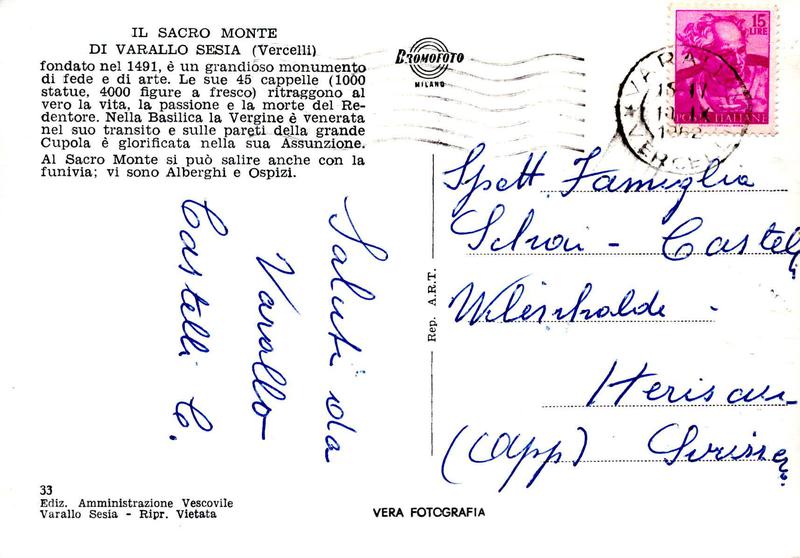 IL SACRO MONTE
DI VARALLO SESIA (Vercelli)
fondato nel 1491, è un grandioso monumento
di fede e di arte. Le sue 45 cappelle (1000
statue, 4000 figure a fresco) ritraggono al
vero la vita, la passione e la morte del Re-
dentore. Nella Basilica la Vergine è venerata
nel suo transito e sulle pareti della grande
Cupola è glorificata nella sua Assunzione.
Al Sacro Monte si può salire anche con la
funivia; vi sono Alberghi e Ospizi.
BROMOFOTO
MILANO
15
LIRE
POSTE ITALIANE
1962
VERCELLI
Saluti da
Varallo
Castelli C.
Rep. A.R.T.
Spett Famiglia
Castelli
Herisau
(App) Svizzera
33
Ediz. Amministrazione Vescovile
Varallo Sesia - Ripr. Vietata
VERA FOTOGRAFIA